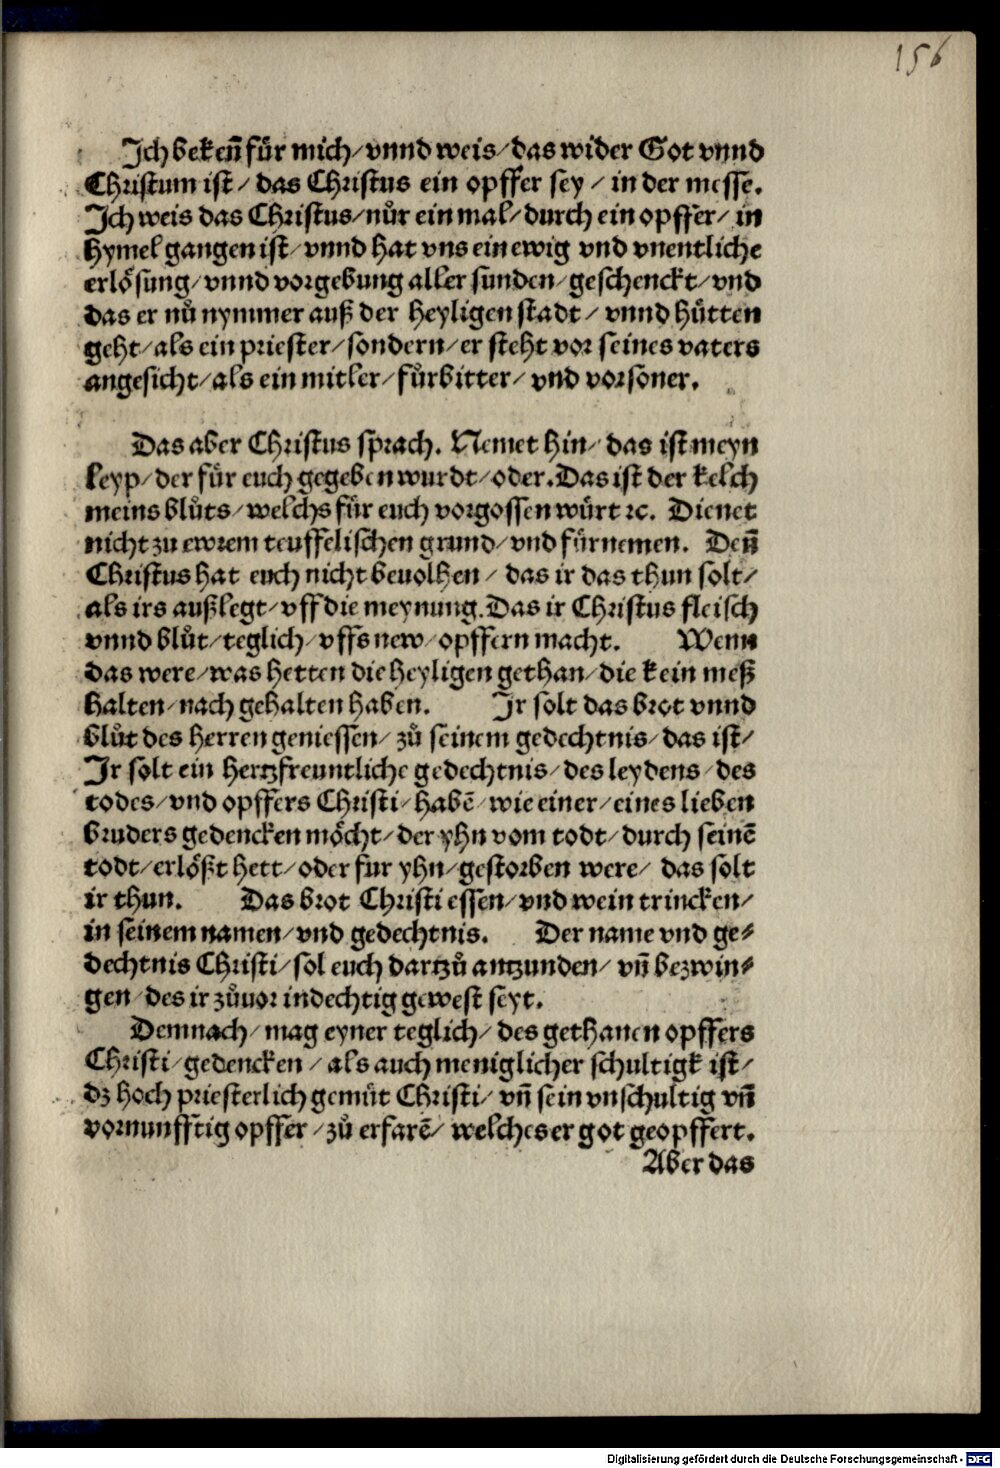 156
Ich bekeñ fůr mich/ vnnd weis/ das wider Got vnnd
Christum ist/ das Christus ein opffer sey/ in der messe.
Ich weis das Christus/ nůr ein mal/ durch ein opffer/ in
hymel gangen ist/ vnnd hat vns ein ewig vnd vnentliche
erlősung/ vnnd vorgebung aller sunden/ geschenckt/ vnd
das er nů nymmer auß der heyligen stadt/ vnnd hůtten
geht/ als ein priester/ sondern/ er steht vor seines vaters
angesicht/ als ein mitler/ fůrbitter/ vnd vorsoner.
Das aber Christus sprach. Nemet hin/ das ist meyn
leyp/ der fůr euch gegeben wurdt/ oder. Das ist der kelch
meins blůts/ welchs fůr euch vorgossen wůrt ꝛc. Dienet
nicht zu ewrem teuffelischen grund/ vnd fůrnemen. Deñ
Christus hat euch nicht beuolhen/ das ir das thun solt/
als irs außlegt/ vff die meynung. Das ir Christus fleisch
vnnd blůt/ teglich/ vffs new/ opffern macht. Wenn
das were/ was hetten die heyligen gethan/ die kein meß
halten/ nach gehalten haben. Ir solt das brot vnnd
blůt des herren geniessen/ zů seinem gedechtnis/ das ist/
Ir solt ein hertzfreuntliche gedechtnis/ des leydens/ des
todes/ vnd opffers Christi/ habē/ wie einer/ eines lieben
bruders gedencken mőcht/ der yhn vom todt/ durch seinē
todt/ erlőßt hett/ oder fur yhn/ gestorben were/ das solt
ir thun. Das brot Christi essen/ vnd wein trincken/
in seinem namen/ vnd gedechtnis. Der name vnd ge⸗
dechtnis Christi/ sol euch dartzů antzunden/ vñ bezwin⸗
gen/ des ir zůuor indechtig gewest seyt.
Demnach/ mag eyner teglich/ des gethanen opffers
Christi/ gedencken/ als auch meniglicher schultigk ist/
dz hoch priesterlich gemůt Christi/ vñ sein vnschultig vñ
vornunfftig opffer/ zů erfarē/ welches er got geopffert.
Aber das
Digitalisierung gefördert durch die Deutsche Forschungsgemeinschaft - DFG